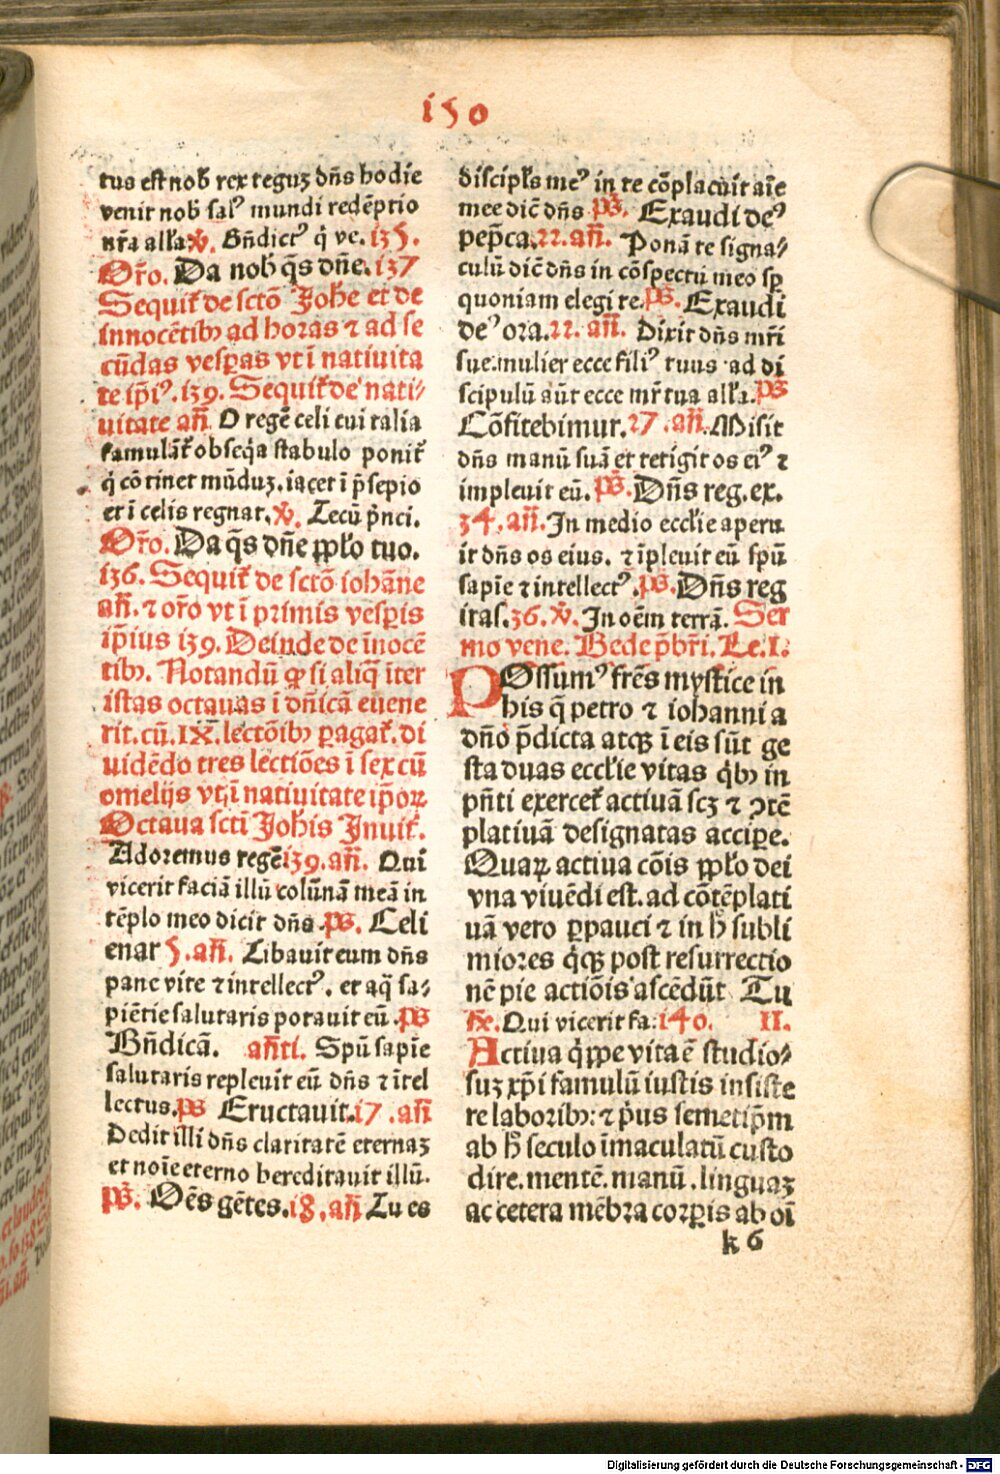 150
tus est nob̄ rex reguꝫ dn̄s hodie
venit nob̄ salꝰ mundi redēptio
nr̄a allꝛa ꝟ. Bn̄dictꝰ q̇ ve. 135.
Or̄o. Da nob̄ q̄s dn̄e. 137
Sequit̄ de sctō Johē et de
innocētibꝫ ad horas ⁊ ad se
cūdas vesꝑas vt ī nativita
te ip̄iꝰ. 139. Sequit̄ de nati⸗
uitate an̄. O regē celi cui talia
famulāt̄ obseq̄a stabulo ponit̄
q̇ cōtinet mūduꝫ. iacet ī p̄sepio
et ī celis regnat. ꝟ. Tecū p̄nci.
Or̄o. Da q̄s dn̄e pp̄lo tuo.
136. Sequit̄ de sctō iohāne
an̄. ⁊ or̄o vt ī primis vesꝑis
ip̄ius 139. Deinde de īnocē
tibꝫ. Notandū ꝙ si aliq̄ iter
istas octauas ī dn̄ica euene
rit. cū. IX. lectōibꝫ ꝑagat̄. di
uidēdo tres lectiōes ī sex cū
omelijs vt ī nativitate ip̄oꝝ
Octaua scti Johis Invit̄.
Adoremus regē 139. an̄. Qui
vicerit faciā illū colūnā meā in
tēplo meo dicit dn̄s. ps̄. Celi
enar 5. an̄. Libavit eum dn̄s
pane vite ⁊ intellectꝰ. et aq̄ sa⸗
piētie salutaris potavit eū. ps̄
Bn̄dicā. an̄ti. Spū sapīe
salutaris replevit eū dn̄s ⁊ ītel
lectus. ps̄ Eructavit. 17. an̄
Dedit illi dn̄s claritatē eternaꝫ
et noīe eterno hereditavit illū.
ps̄. Oēs gētes. 18. an̄ Tu es
discipl̄s meꝰ in te cōplacuit aīe
mee dic̄ dn̄s ps̄. Exaudi deꝰ
dep̄ca. 22. an̄. Ponā te signa⸗
culū dic̄ dn̄s in cōspectu meo sꝑ
quoniam elegi te. ps̄. Exaudi
deꝰ ora. 22. an̄. Dixit dn̄s mr̄i
sue. mulier ecce filiꝰ tuus ad di
scipulū aūt ecce mr̄ tua all̄a. ps̄
Cōfitebimur. 27. an̄. Misit
dn̄s manū suā et tetigit os eiꝰ ⁊
implevit eū. ps̄. Dn̄s reg. ex.
34. an̄. In medio eccl̄ie aperu
it dn̄s os eius. ⁊ īplevit eū spū
sapīe ⁊ intellectꝰ. ps̄. Dn̄s reg
iras. 36. ꝟ. In oēm terrā. Ser
mo vene. Bede p̄bri. Le. I.
POssumꝰ fr̄es mystice in
his q̄ petro ⁊ iohanni a
dn̄o p̄dicta atqꝫ ī eis sūt ge
sta duas eccl̄ie vitas q̇bꝫ in
pn̄ti exercet̄ activā scꝫ ⁊ ꝯtē
plativā designatas accipe.
Quaꝝ activa cōis pp̄lo dei
vna viuēdi est. ad cōtēplati
uā vero ꝑpauci ⁊ in h̄ subli
miores q̇qꝫ post resurrectio
nē pie actiōis ascēdūt Tu
ꝶ. Qui vicerit fa: 140. II.
Activa q̇ppe vita ē studio⸗
suꝫ xp̄i famulū iustis insiste
re laboribꝫ: ⁊ p̄us semetip̄m
ab h̄ seculo īmaculatū custo
dire. mentē. manū. linguaꝫ
ac cetera mēbra corꝑis ab oī
k 6
Digitalisierung gefördert durch die Deutsche Forschungsgemeinschaft - DFG